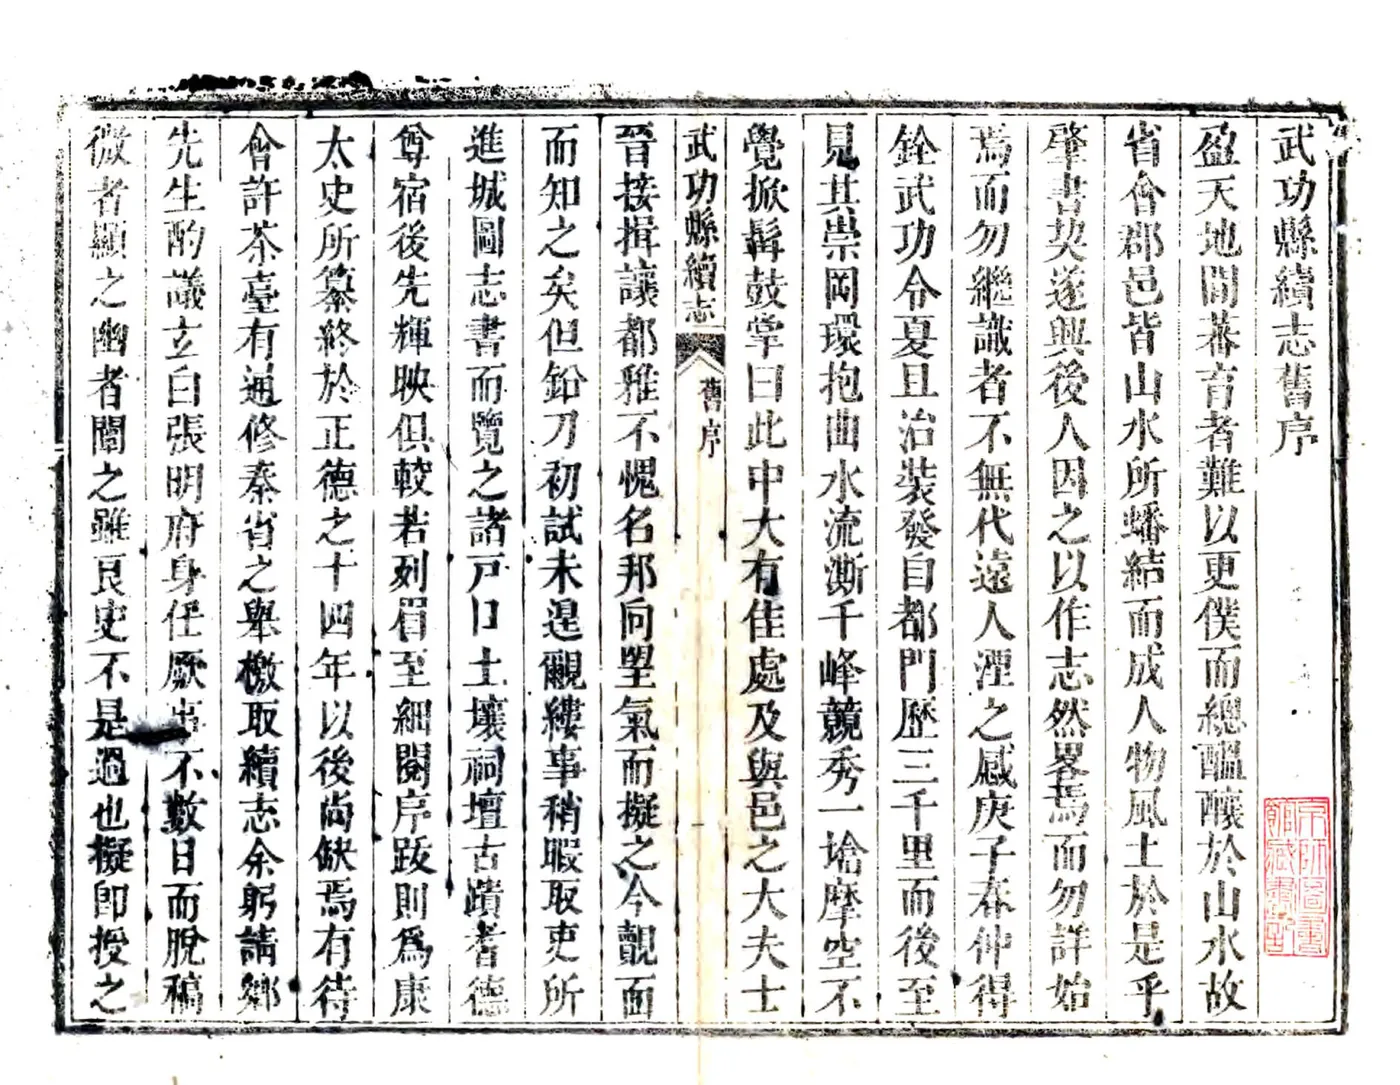 武功縣續志舊序
盈天地間蕃育者難以更僕而總醞釀於山水故
省會郡邑皆山水所蟠結而成人物風土於是乎
肇書契遂興後人因之以作志然畧焉而勿詳始
焉而勿繼識者不無代遠人湮之感庚子春仲得
銓武功令夏且治裝發自都門歷三千里而後至
見其崇岡環抱曲水流澌千峰競秀一塔摩空不
覺掀髯鼓掌曰此中大有佳處及與邑之大夫士
武功縣續志
舊序
晉接揖讓都雅不愧名邦向望氣而擬之今覿面
而知之矣但鉛刀初試未遑覼縷事稍暇取吏所
進城圖志書而覽之諸戸口土壤祠壇古蹟耆德
尊宿後先輝映俱較若列眉至細閱序跋則爲康
太史所纂終於正德之十四年以後尚缺焉有待
會許茶臺有通修秦省之舉檄取續志余躬請鄉
先生酌議玄白張明府身任厥事不數日而脫稿
微者顯之幽者闡之雖良史不是過也擬卽授之
京師圖書
館藏書記